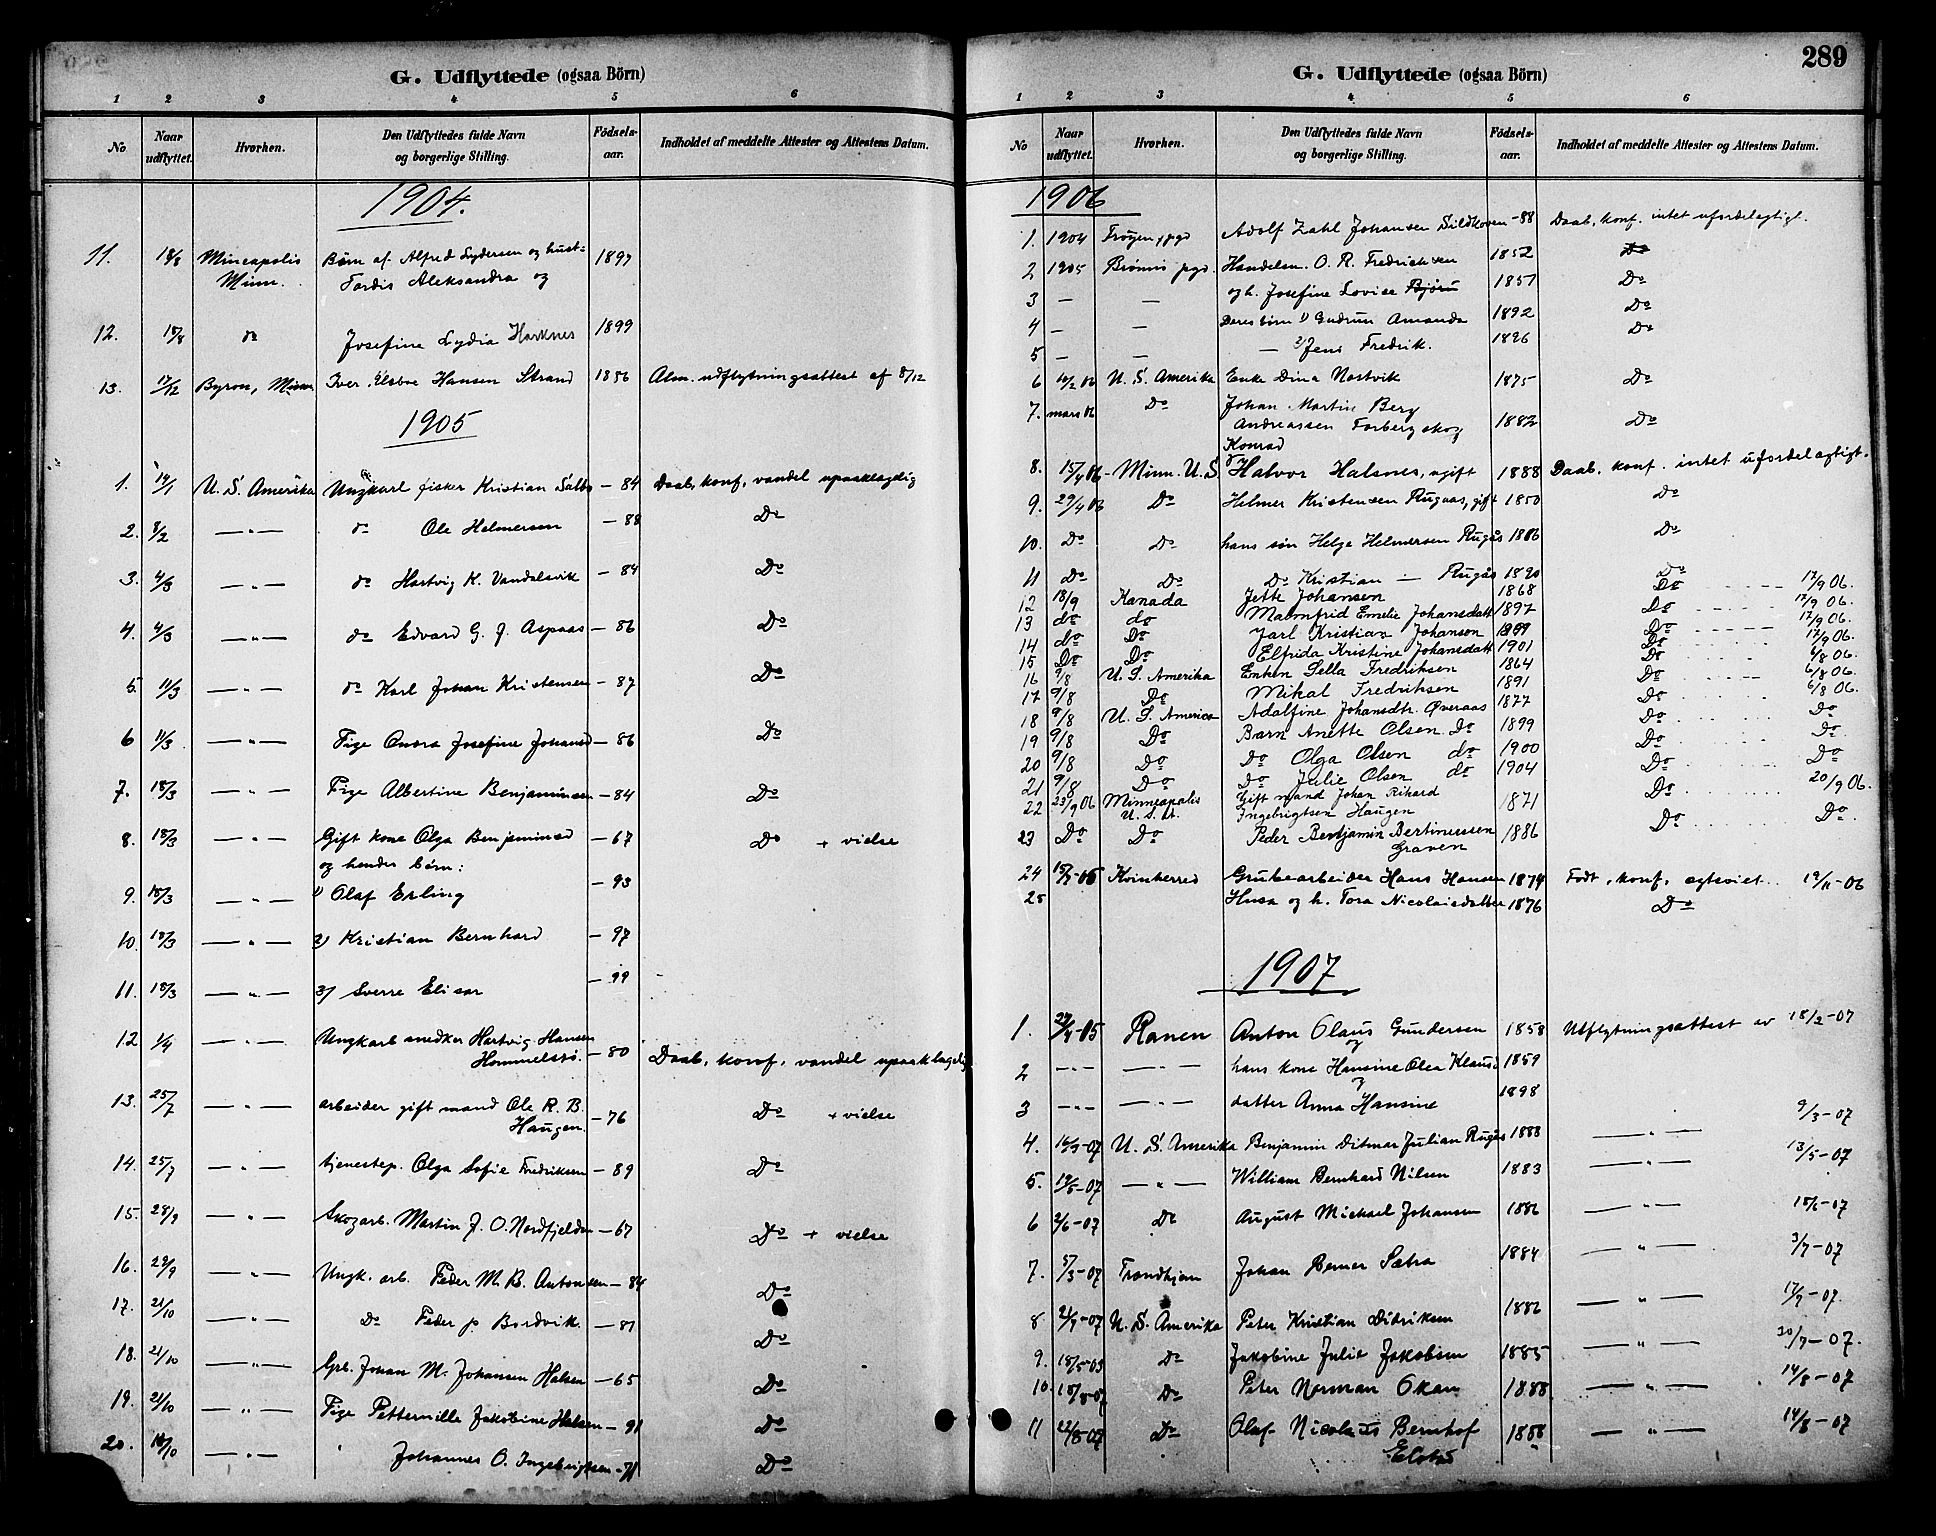 G. Udflyttede (ogsaa Börn)
1 2 3 4 5 6
No Naar udflyttet. Hvorhen. Den Udflyttedes fulde Navn og borgerlige Stilling. Födsels-aar. Indholdet af meddelte Attester og Attestens Datum.
1904.
11. 18/8 Mineapolis Börn af Alfred Lydersen og hust- 1897
Minn. Tordis Aleksandra og
12. 18/8 do Josefine Lydia Harknes 1899
13. 17/12 Byron, Minn Iver Elsboe Hansen Strand 1856 Alm. udflytningsattest af 8/12
1905
1. 19/1 U. S. Amerika Ungkarl fisker Kristian Salbo - 84 Daab, konf, vandel upaaklagelig
2. 8/2 — " — do Ole Helmersen - 88 Do
3. 4/3 — " — do Hartvig K. Vandalsvik - 84 Do
4. 4/3 — " — do Edvard G. J. Aspaas - 86 Do
5. 11/3 — " — do Karl Johan Kristensen - 87 Do
6 11/3 — " — Pige Josefine Johansd - 86 Do
7. 18/3 — " — Pige Albertine Benjaminsen - 84 Do
8. 18/3 — " — Gift kone Olga Benjaminsd - 67 Do + vielse
og hendes börn:
9. 18/3 — " — 1) Olaf Erling - 93
10. 18/3 — " — 2) Kristian Bernhard - 97
11. 18/3 — " — 3) Sverre Elisar - 99
12 1/4 — " — Ungkarl snedker Hartvig Hansen
Hommelstø. - 80 Daab, konf, vandel upaaklagelig
13. 25/7 — " — arbeider gift mand Ole R. B.
Haugen. - 76 Do + vielse
14. 25/7 — " — tjenestep. Olga Sofie Fredriksen - 89 Do
15. 28/9 — " — Skogarb. Martin J. O. Nordfjelda - 67 Do + vielse
16. 29/9 — " — Ungk. arb. Peder M. B. Antonsen - 84 Do
17. 21/10 — " — Do Peder p Bordvik - 81 Do
18. 21/10 — " — Grb. Johan M. Johansen Halsen - 65 Do
19. 21/10 — " — Pige Petternille Jakobine Halsen - 91 Do
20. 18/10 — " — Johannes O. Ingebrigtsen - 71 Do
289
G. Udflyttede (ogsaa Börn)
1 2 3 4 5 6
No Naar udflyttet. Hvorhen. Den Udflyttedes fulde Navn og borgerlige Stilling. Födsels-aar. Indholdet af meddelte Attester og Attestens Datum.
1906
1. 1904 Frøyen pgd Adolf Zahl Johansen Sildhoven - 88 Daab, konf. intet ufordelagtigt.
2 1905 Brønnø pgd. Handelsm. O. R. Fredriksen 1852 Do
3 — — og h. Josefine Lovise 1851 Do
4 — — Deres börn 1) Gudrun Amanda 1892 Do
5 — — — 2) Jens Fredrik. 1896 Do
6 10/2 06 U. S. Amerika Enke Dina Nostvik 1875 Do
7. mars 06 Do Johan Martin Berg
Andreassen Forbergskog 1882 Do
Konrad
8. 15/4 06 - Minn. U.S. Halvor Halsnes, ugift 1888 Daab, konf. intet ufordelagtigt.
9. 29/4 06 Do Helmer Kristensen Rugaas, gift 1850 Do
10. Do Do hans søn Helge Helmersen Rugås 1886 Do
11 Do Do Do Kristian — Rugås 1890 Do
12 18/9 Kanada Jette Johansen 1868 Do 17/9 06.
13 do do Malmfrid Emelie Johansdatt 1897 Do 17/9 06.
14 do Do Jarl Kristian Johanson 1899 Do 17/9 06.
15 Do Do Elfrida Kristine Johansdatt 1901 Do 17/9 06.
16 9/8 U. S. Amerika Enken Sella Fredriksen 1864 Do 6/8 06.
17 9/8 Do Mikal Fredriksen 1891 Do 6/8 06.
18 9/8 U. S. America Adalfine Johansdtr. Øveraas 1877 Do 6/8 06.
19 9/8 Do Barn Anette Olsen do 1899 Do Do
20 9/8 Do Do Olga Olsen do 1900 Do Do
21 9/8 Do Do Julie Olsen do 1904 Do Do
22 23/9 06 Minneapolis Gift mand Johan Rikard
U. S. A. Ingebrigtsen Haugen 1871 Do 20/9 06.
23 Do Do Peder Benjamin Bertinussen
Graven 1886 Do Do
24 Kvinherred Grubearbeider Hans Hansen 1874 Født, konf, egteviet 19/11-06
25 Husa og h. Tora Nicolaisdatter 1876 Do
1907
1. 27/4-05 Ranen Anton Olaus Gundersen 1858 Udflytningsattest av 18/2-07
og
2 — " — — " — hans kone Hansine Olea Klausd 1859
og
3 — " — — " — datter Anna Hansine 1898
4. 16/3-07 U. S. Amerika Benjamin Ditmar Julian Rugås 1888 — " — 9/3-07
5. 19/5-07 — " — William Bernhard Nilsen 1883 — " — 13/5-07
6 2/6-07 Do August Michael Johansen 1886 — " — 18/6-07
7. 5/3-07 Trondhjem Johan Berner Sætra 1884 — " — 3/7-07
8 21/7-07 U. S. Amerika Peter Kristian Didriksen 1886 — " — 17/7-07.
9. 18/5-03 Do Jakobine Julie Jakobsen 1885 — " — 30/7-07.
10. 18/8-07 Do Peter Norman Okan 1888 — " — 14/8-07
11 22/8-07 Do Olaf Nicolaus Bernhof 1888 — " — 14/8-07